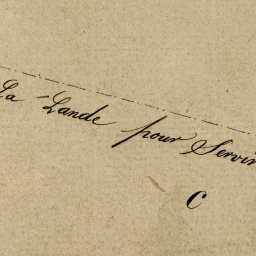 La Lande pour Servir
C